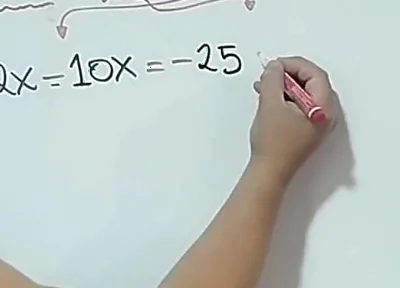 2x = 10x = -25